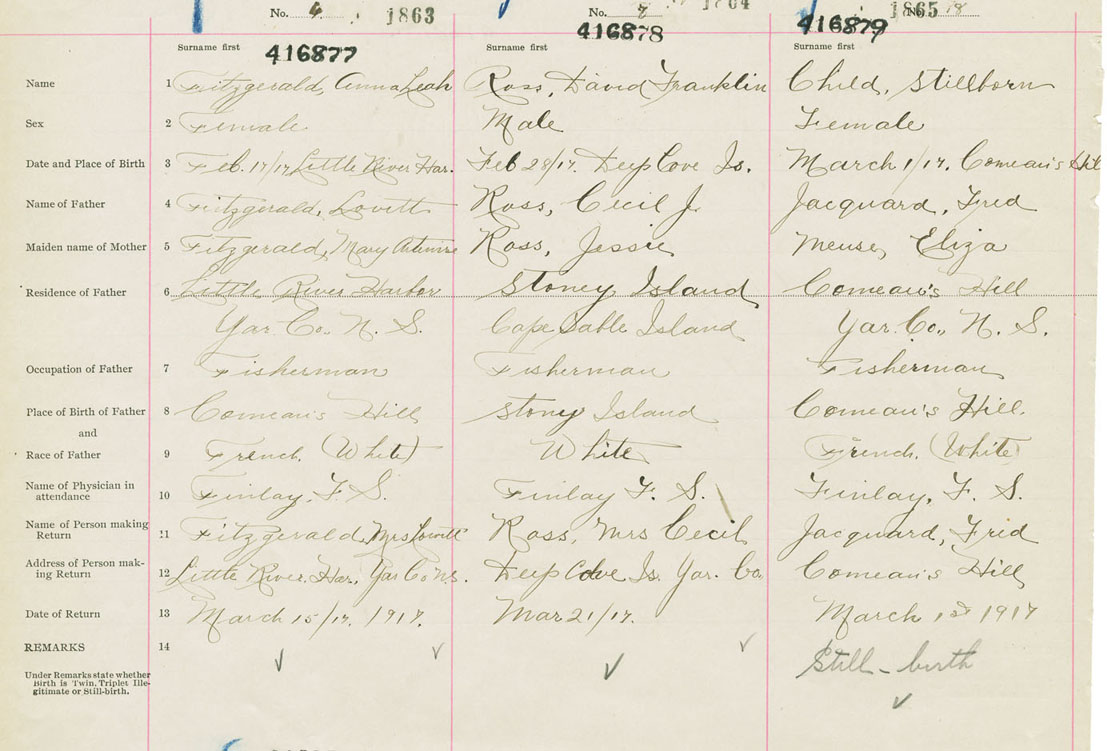 No. 4 1863 No. 8 1864 No. 1865
416877 416878 416879
Surname first Surname first Surname first
Name 1 Fitzgerald, Anna Leah Ross, David Franklin Child, Stillborn
Sex 2 Female Male Female
Date and Place of Birth 3 Feb. 17/17 Little River Har. Feb 28/17. Deep Cove Is. March 1/17. Comeau's Hill
Name of Father 4 Fitzgerald, Lovitt Ross, Cecil J. Jacquard, Fred
Maiden name of Mother 5 Fitzgerald, Mary Ross, Jessie Meuse, Eliza
Residence of Father 6 Little River Harbor Stoney Island Comeau's Hill
Yar Co., N. S. Cape Sable Island Yar. Co., N. S.
Occupation of Father 7 Fisherman Fisherman Fisherman
Place of Birth of Father 8 Comeau's Hill Stony Island Comeau's Hill.
and
Race of Father 9 French. (White) White French. (White)
Name of Physician in attendance 10 Finlay, F. S. Finlay F. S. Finlay, F. S.
Name of Person making Return 11 Fitzgerald, Mrs Lovitt Ross, Mrs Cecil Jacquard, Fred
Address of Person making Return 12 Little River Har, Yar Co NS. Deep Cove Is. Yar. Co. Comeau's Hill
Date of Return 13 March 15/17. 1917. Mar 21/17. March 1st 1917
REMARKS 14 Still-birth
Under Remarks state whether
Birth is Twin, Triplet Ille-
gitimate or Still-birth.